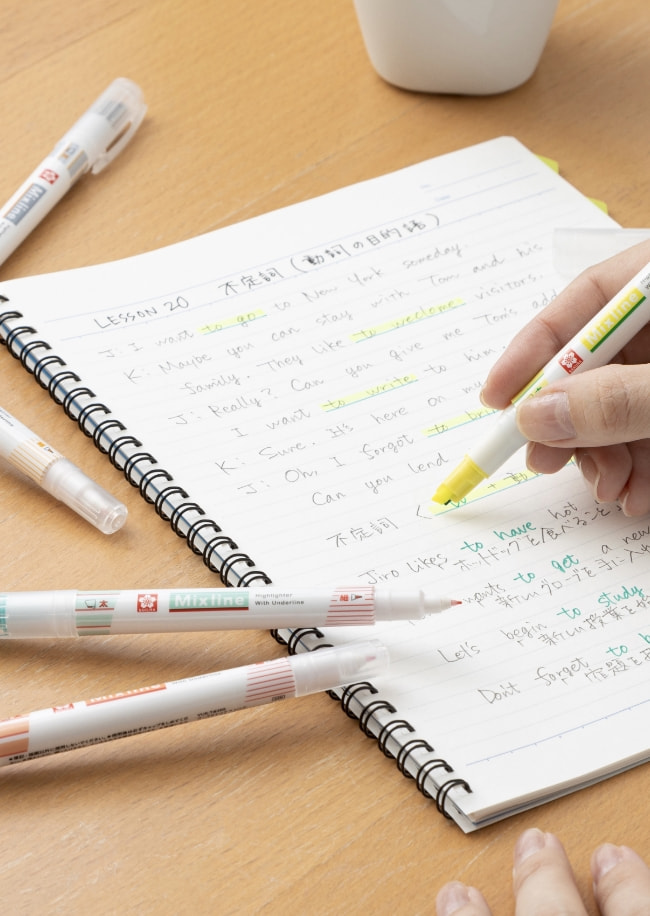 LESSON 20 不定詞 (動詞の目的語)
J: I want to go to New York someday.
K: Maybe you can stay with Tom and his
family. They like to weclome visitors.
J: Really? Can you give me Tom's add
I want to write to him.
K: Sure. It's here on my
J: Oh, I forgot to
Can you lend
不定詞 (to + 動
Jiro likes to have hot
ホットドックを食べること
to get a new
新しいグローブを手に入れ
Let's begin to study
新しい授業を
Don't forget to b
宿題を
Mixline
Mixline
Mixline
Highlighter
With Underline
細
太
Mixline